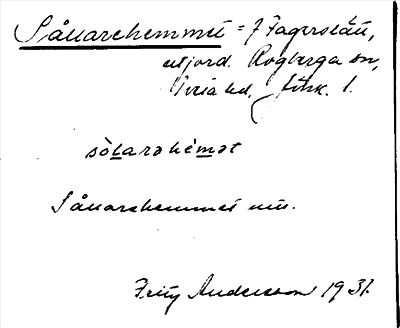 Såtarehemmet = i Fagerslätt,
utjord. Rogberga sn,
Tveta hd. Jönk. l.
sòtarəhèmət
Såtarehemmet
Andersson 1931.